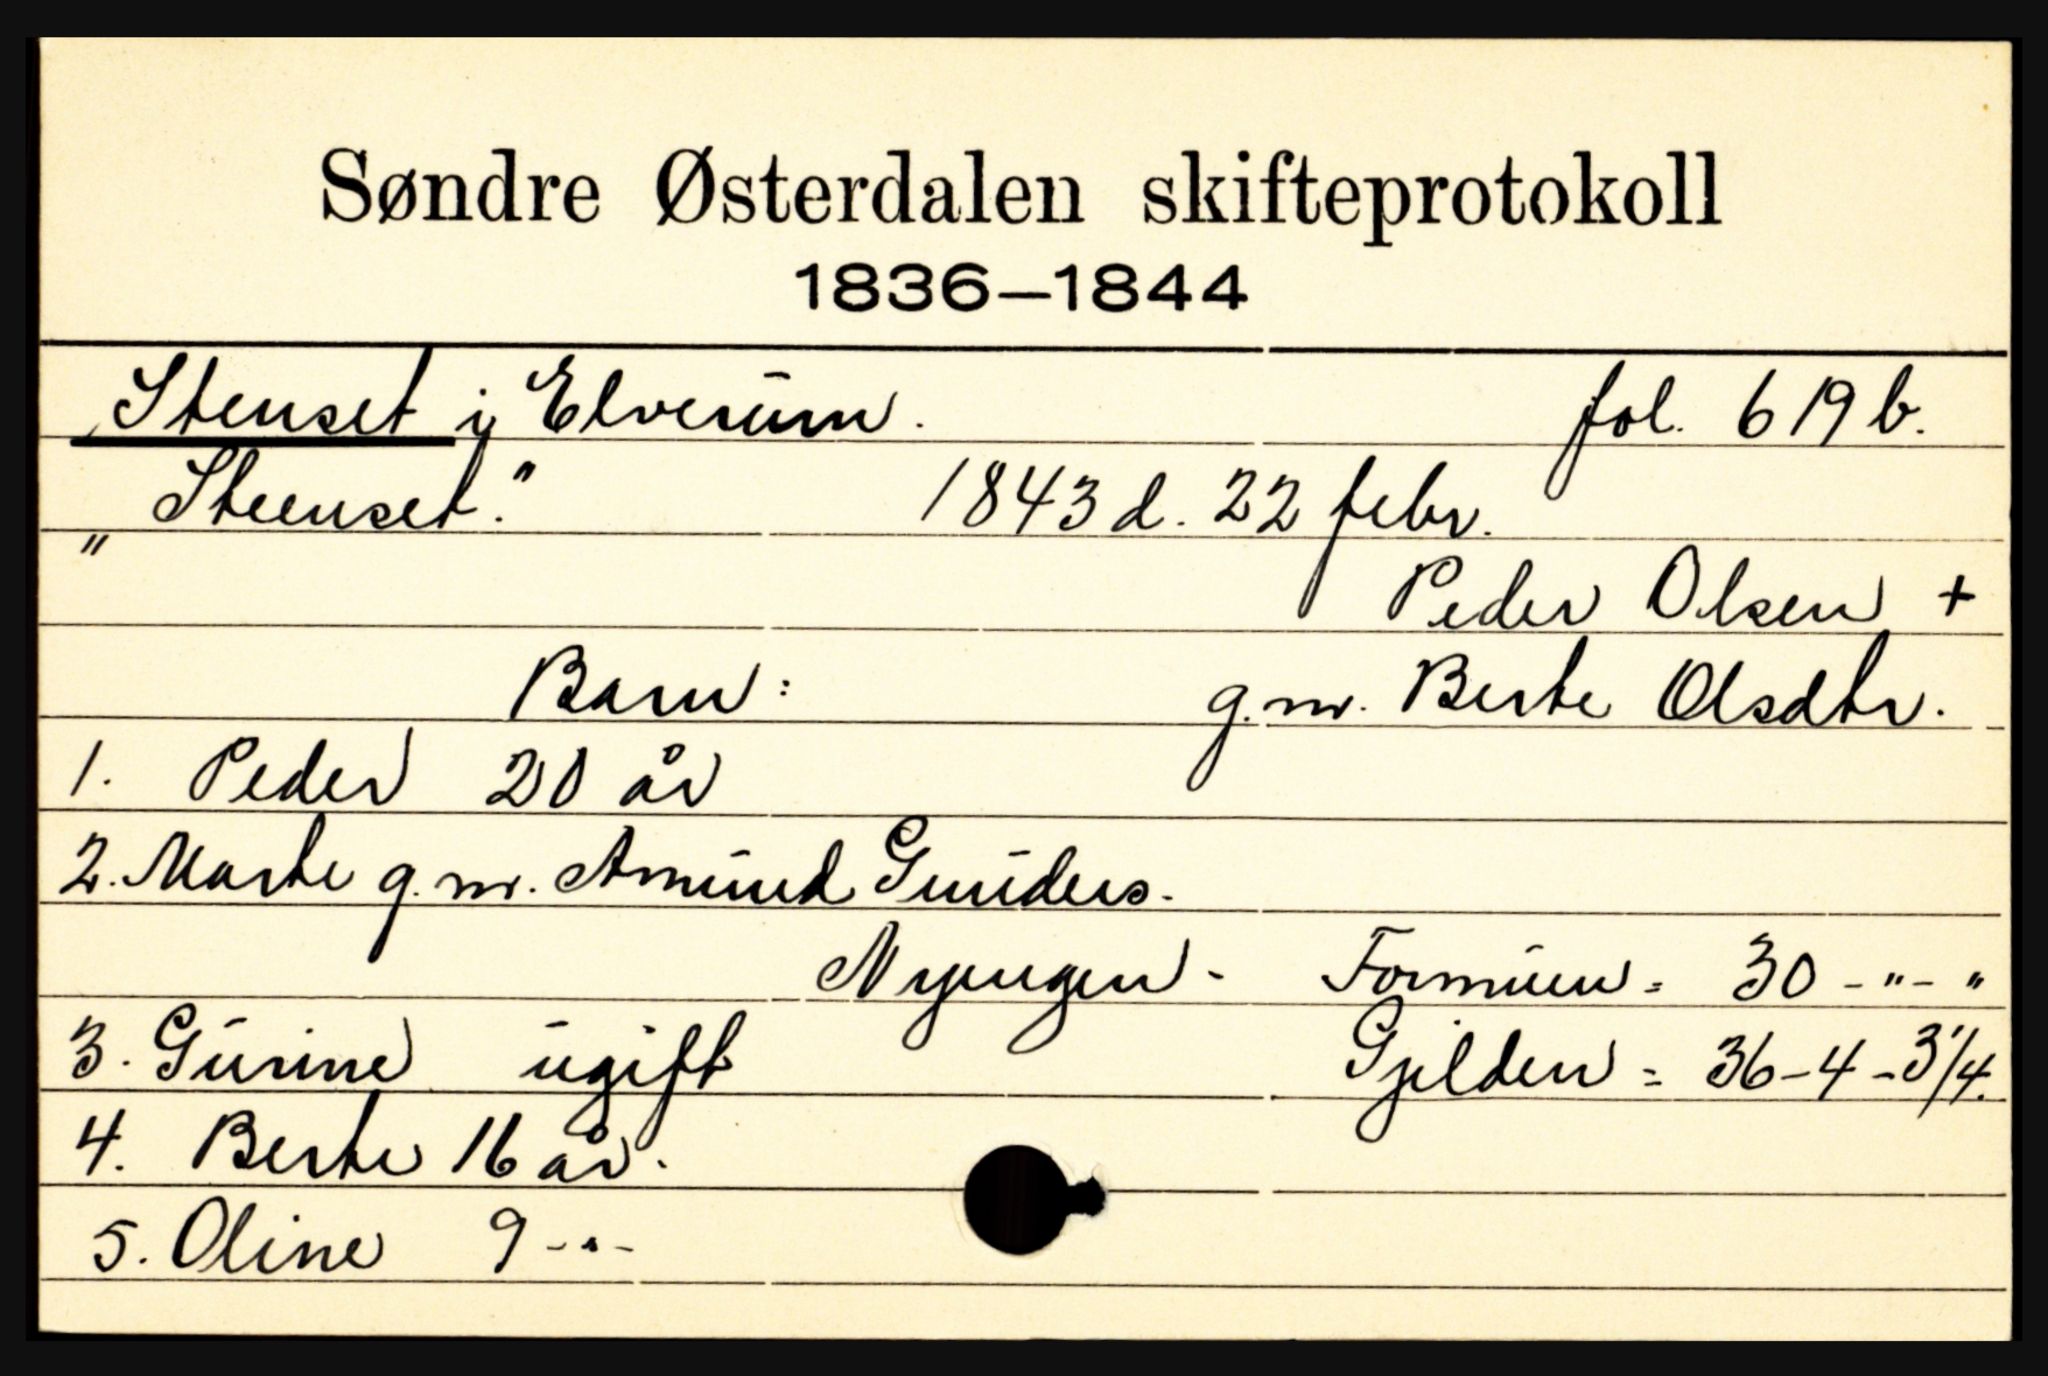 Søndre Østerdalen skifteprotokoll
1836–1844
Stenset i Elverum. fol. 619 b.
"Steenset." 1843 d. 22 febr.
Peder Olsen +
Barn: g.m. Berte Olsdtr.
1. Peder 20 år
2. Marte g.m. Amund Gunders.
Nyengen - Formuen = 30 - " - "
3. Gurine ugift Gjelden = 36 - 4 - 3 1/4.
4. Berte 16 år.
5. Oline 9 - " -